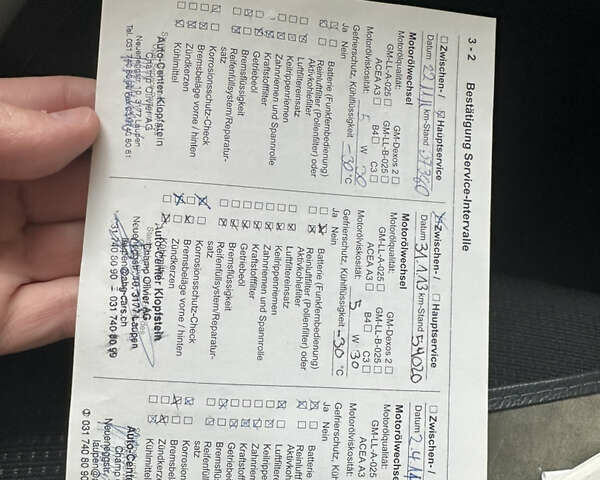 3 - 2 Bestätigung Service-Intervalle
☐ Zwischen- / ☒ Hauptservice
Datum 22.11.11 km-Stand 37380
Motorölwechsel
Motorölqualität: GM-Dexos 2 ☐
GM-LL-A-025 ☐ GM-LL-B-025 ☐
ACEA A3 ☐ B4 ☐ C3 ☐
Motorölviskosität: 5 W 30
Gefrierschutz, Kühlflüssigkeit -30 °C
Ja Nein
Batterie (Funkfernbedienung)
Reinluftfilter (Pollenfilter) oder
Aktivkohlefilter
Luftfiltereinsatz
Keilrippenriemen
Zahnriemen und Spannrolle
Kraftstofffilter
Getriebeöl
Bremsflüssigkeit
Reifenfüllsystem/Reparatur-
satz
Korrosionsschutz-Check
Bremsbeläge vorne / hinten
Zündkerzen
Kühlmittel
Auto-Center Klopfstein
Champ Olivier AG
3177 Laupen
Tel. 031 740 80 80
☒ Zwischen- / ☐ Hauptservice
Datum 31.1.13 km-Stand 54020
Motorölwechsel
Motorölqualität: GM-Dexos 2 ☐
GM-LL-A-025 ☐ GM-LL-B-025 ☐
ACEA A3 ☐ B4 ☐ C3 ☐
Motorölviskosität: 5 W 30
Gefrierschutz, Kühlflüssigkeit -30 °C
Ja Nein
Batterie (Funkfernbedienung)
Reinluftfilter (Pollenfilter) oder
Aktivkohlefilter
Luftfiltereinsatz
Keilrippenriemen
Zahnriemen und Spannrolle
Kraftstofffilter
Getriebeöl
Bremsflüssigkeit
Reifenfüllsystem/Reparatur-
satz
Korrosionsschutz-Check
Bremsbeläge vorne / hinten
Zündkerzen
Auto-Center Klopfstein
Champ Olivier AG
3177 Laupen
031 740 80 90
☐ Zwischen- /
Datum
Motorölwechs
Motorölqualität:
GM-LL-A-025
ACEA A3
Motorölviskosität:
Gefrierschutz, Kü
Ja Nein
Batterie
Reinluft
Aktivko
Luftfilte
Keilripp
Zahnrie
Kraftst
Getrieb
Bremsfl
Reifenfül
satz
Korrosi
Bremsbel
Zündkerz
Kühlmitte
Auto-Cente
Champ
laupen@
031 740 80 9